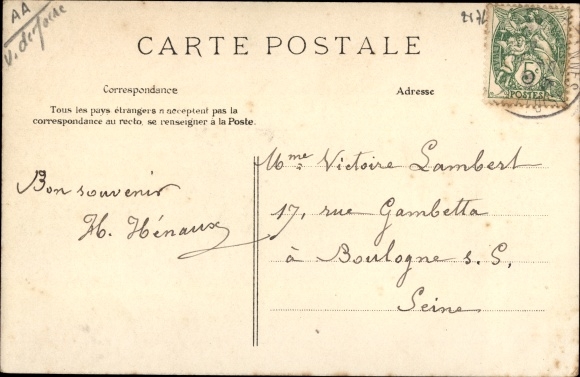 AA
2176
CARTE POSTALE
Correspondance
Adresse
Tous les pays étrangers n'acceptent pas la
correspondance au recto, se renseigner à la Poste.
5
POSTES
Bon souvenir
H. Hénaux
Mme Victoire Lambert
17, rue Gambetta
à Boulogne s. S.
Seine